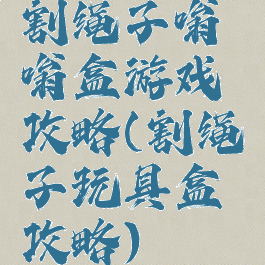 割绳子嗡
嗡盒游戏
攻略(割绳
子玩具盒
攻略)